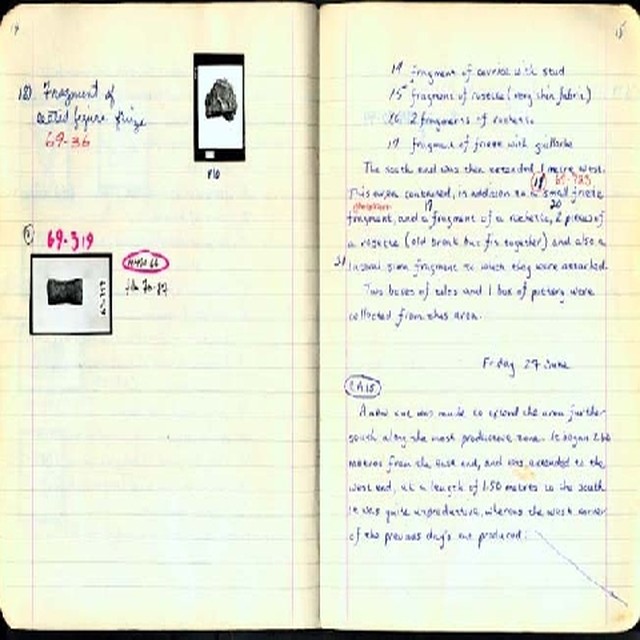 14
18) Fragment of
seated figure frieze
69-36
P10
69-319
film 70-87
15
14 fragment of cornice with stud
15 fragment of rosette (very thin fabric)
16 2 fragments of rosette
17 fragment of frieze with guilloche
The south end was then extended 1 metre west.
This area contained, in addition to a 18 small frieze
fragment, and a fragment of a rosette, 2 pieces of
19 20
a rosette (old break but fits together) and also a
21 lateral sima fragment to which they were attached.
Two boxes of tiles and 1 box of pottery were
collected from this area.
Friday 27 June
A new cut was made to extend the area further
south along the most productive zone. It began 2
metres from the east end, and was extended to the
west end, at a length of 1.50 metres to the south
It was quite unproductive, whereas the west corner
of the previous day's cut produced: